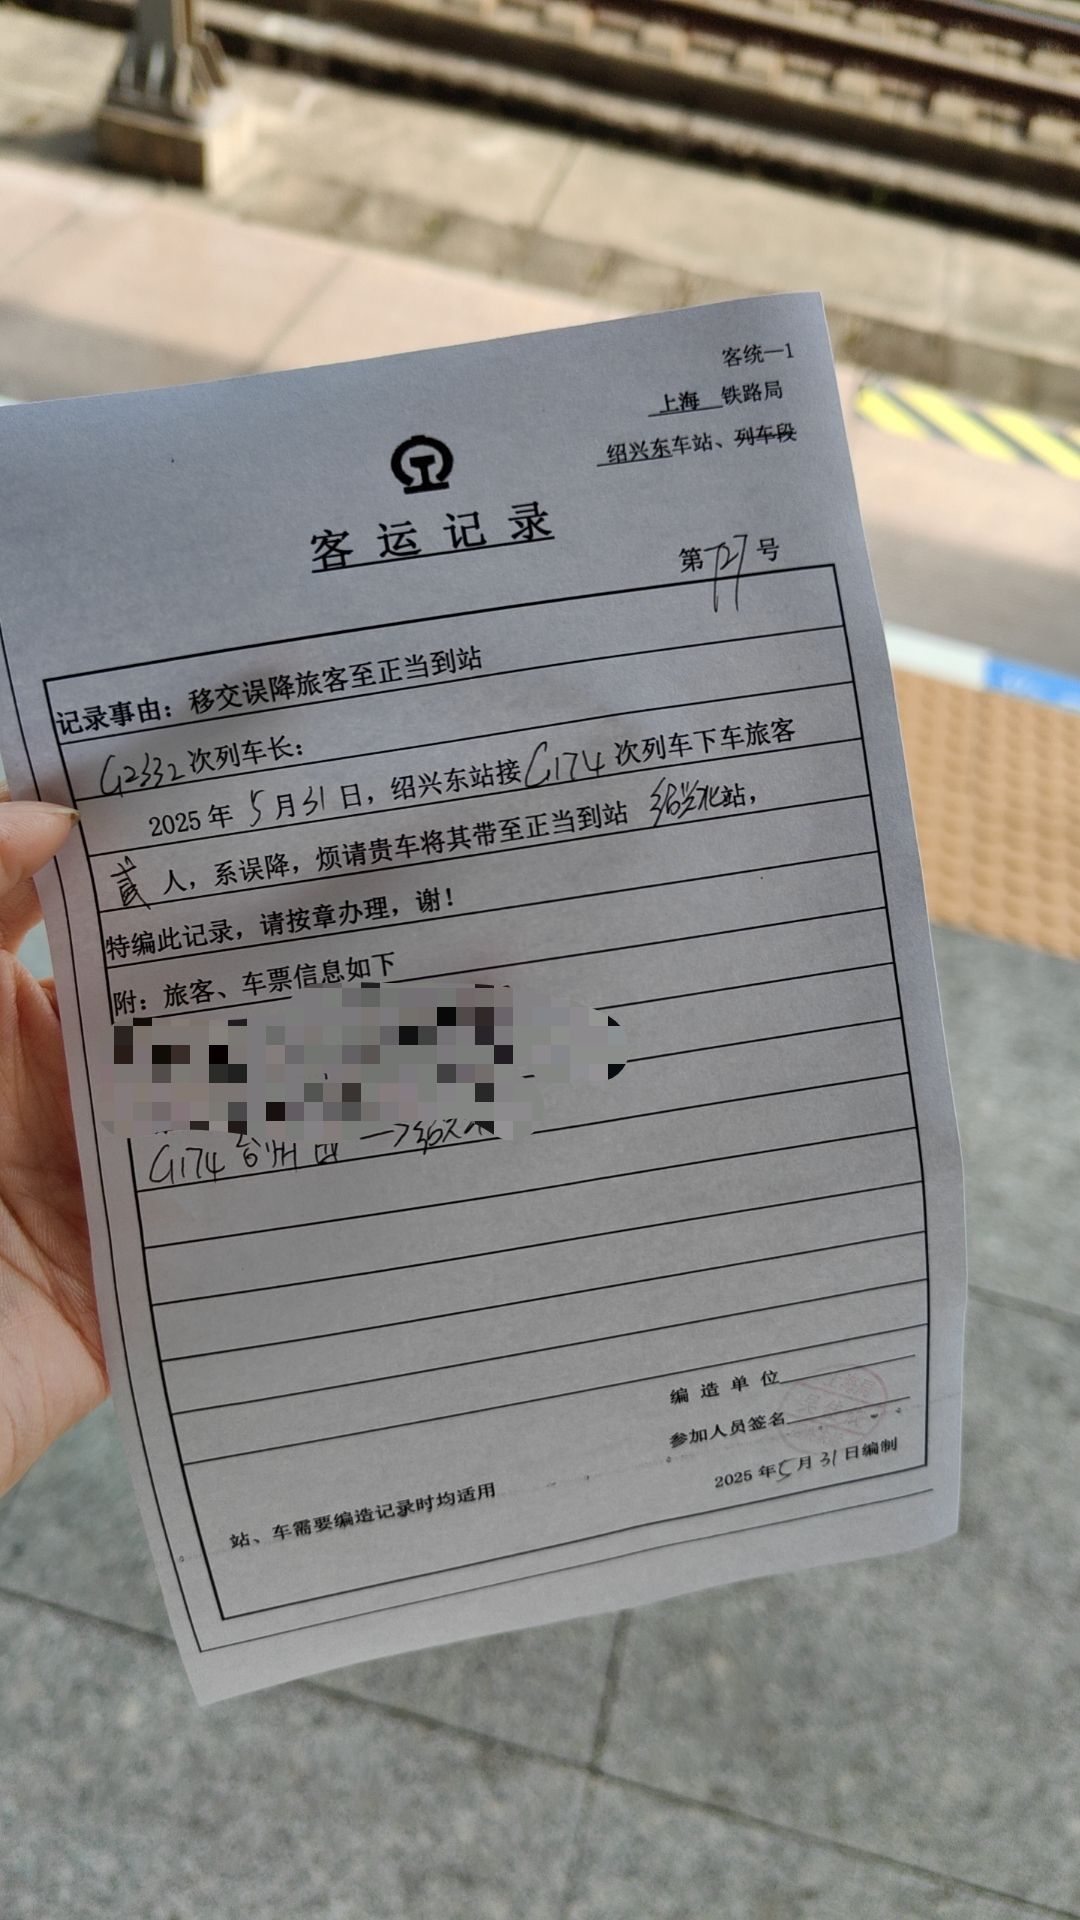 客统—1
上海 铁路局
绍兴东车站、列车段
客运记录
第727号
记录事由：移交误降旅客至正当到站
G2332次列车长：
2025年5月31日，绍兴东站接G174次列车下车旅客
贰人，系误降，烦请贵车将其带至正当到站 绍兴北站，
特编此记录，请按章办理，谢！
附：旅客、车票信息如下
G174 台州西→绍兴
编造单位
参加人员签名
2025年5月31日编制
站、车需要编造记录时均适用